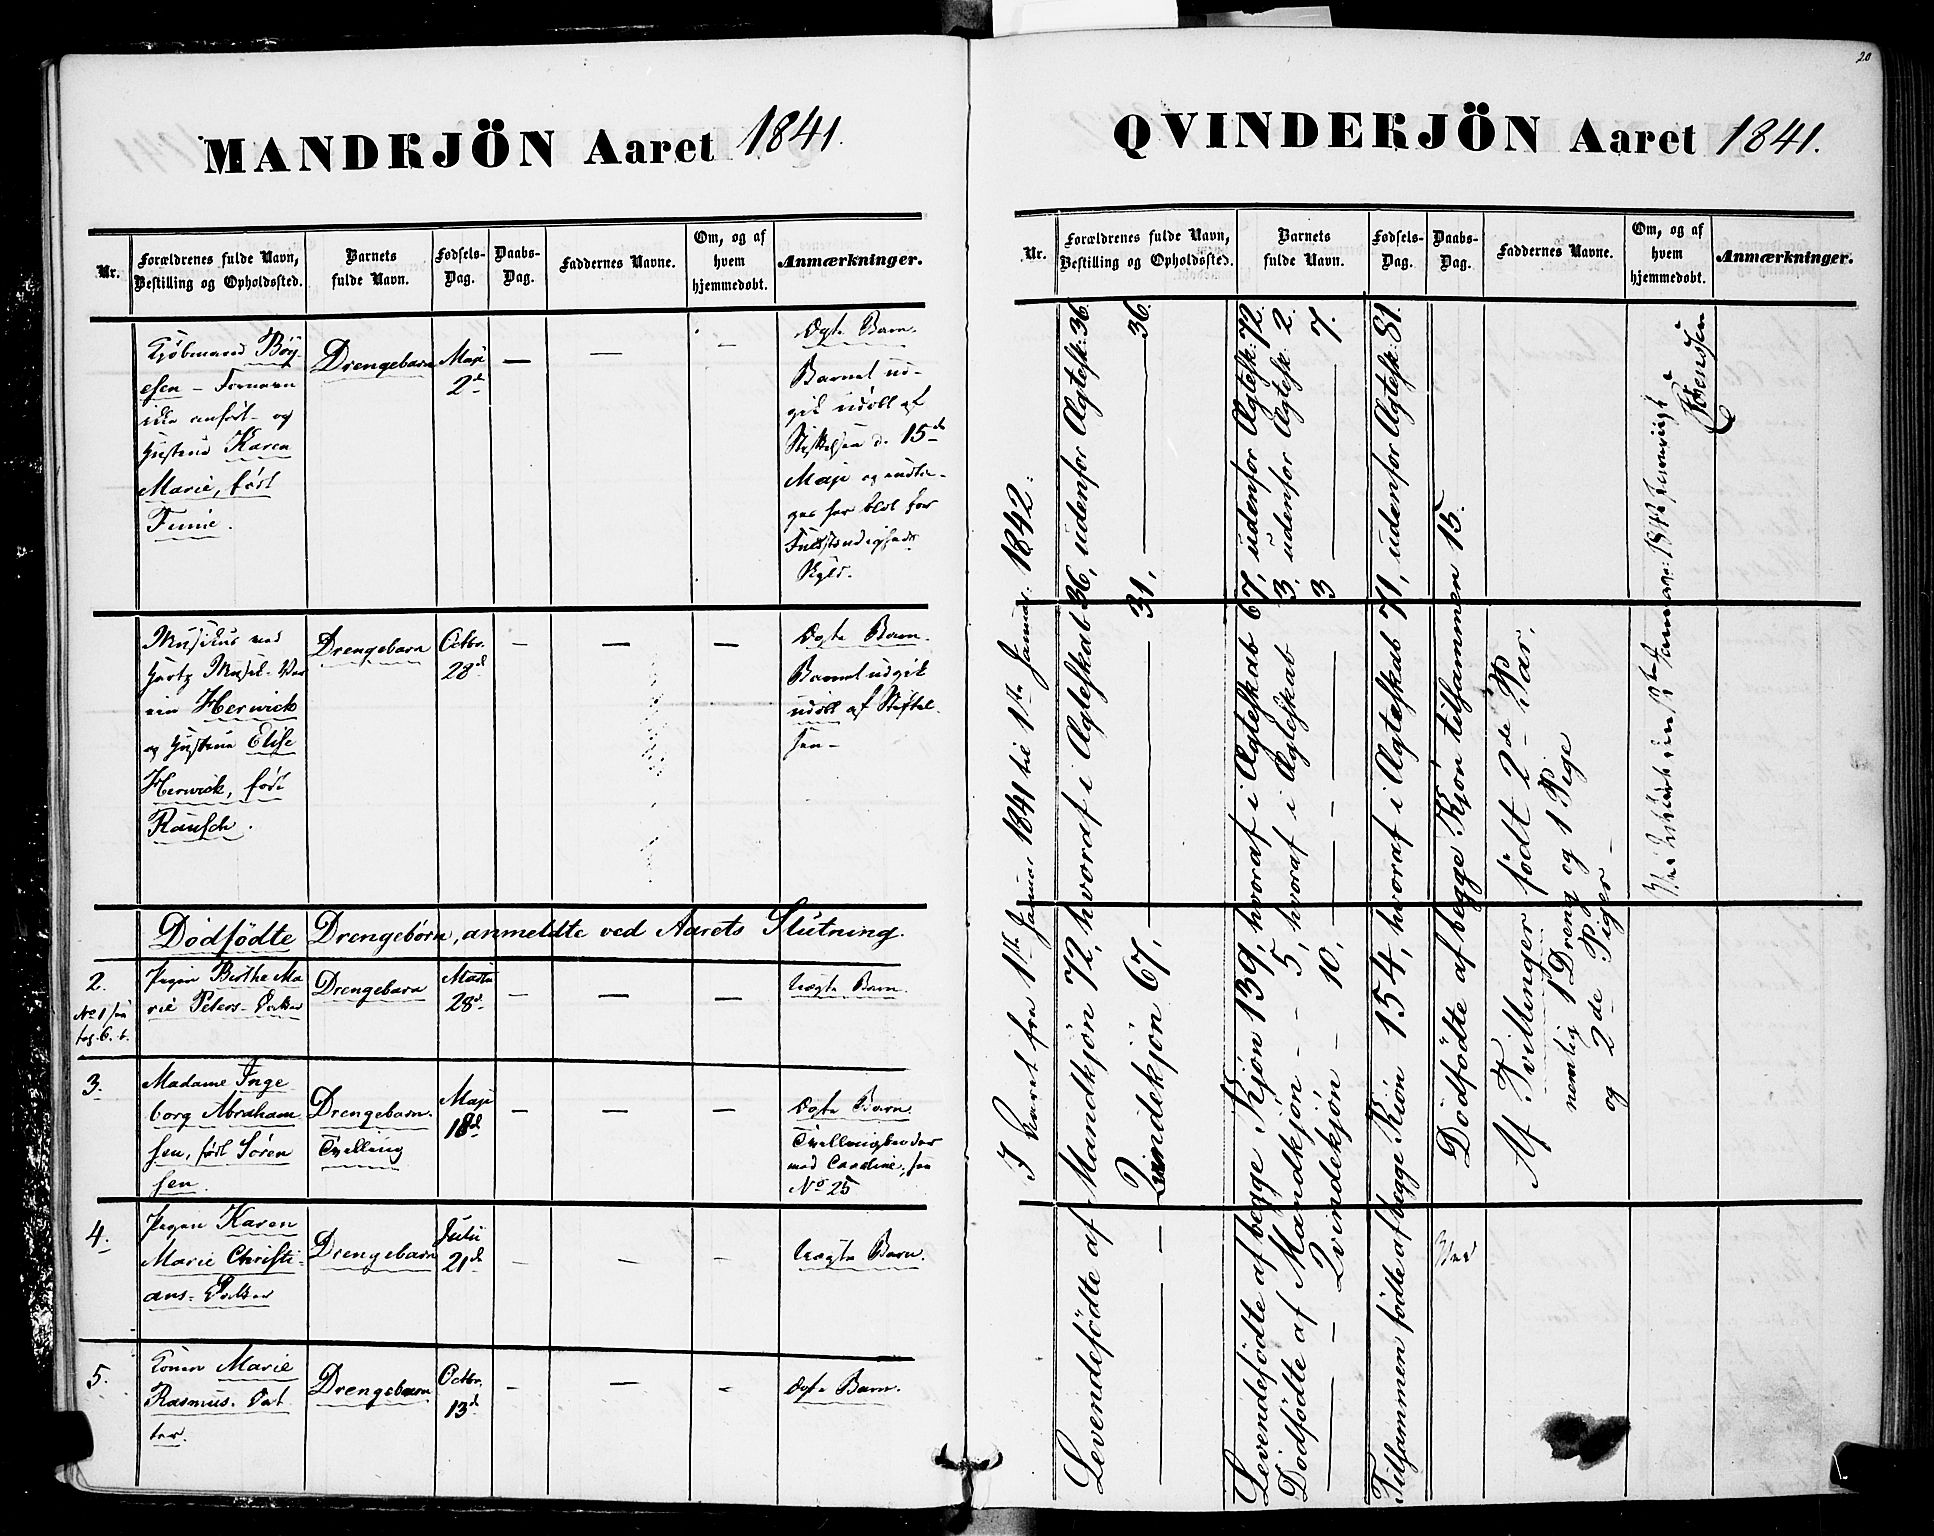 20
MANDKJÖN Aaret 1841.
Nr.
Forældrenes fulde Navn,
Bestilling og Opholdssted.
Barnets
fulde Navn.
Fødsels-
Dag.
Daabs-
Dag.
Faddernes Navne.
Om, og af
hvem
hjemmedøbt.
Anmærkninger.
Kjöbmand Böy
esen - Fornavn
ikke anfört - og
Hustrue Karen
Marie, födt
Drengebarn
Maji
2d
—
—
—
Ægte Barn.
Barnet ud-
gik udöbt af
Stiftelsen d. 15d
Maji og
for
Skyld.
Musikus ved
Herwick
og Hustrue Elise
Herwick, födt
Rausch.
Drengebarn
Octbr.
28d
—
—
—
Ægte Barn.
Barnet udgik
udöbt af Stiftel-
sen -
Dödfödte Drengebörn, anmeldte ved Aarets Slutning.
2.
No 1 see
pag. 6. b.
Pigen Birthe Ma
rie Peters-Datter
Drengebarn
Martii
28d
—
—
—
Uægte Barn.
3.
Madame Inge
borg Abraham
sen, födt Sören
sen.
Drengebarn.
Tvilling
Maji
18d
—
—
—
Ægte Barn
Tvillingbroder
med Caroline, see
No 25
4.
Pigen Karen
Marie Christi-
ans-Datter
Drengebarn
Julii
21d
—
—
—
Uægte Barn.
5.
Konen Marie
Rasmus-Dat
ter.
Drengebarn
Octbr.
13d
—
—
—
Ægte Barn.
QVINDEKJÖN Aaret 1841.
Nr.
Forældrenes fulde Navn,
Bestilling og Opholdssted.
Barnets
fulde Navn.
Fødsels-
Dag.
Daabs-
Dag.
Faddernes Navne.
Om, og af
hvem
hjemmedøbt.
Anmærkninger.
I Aaret fra 1ste Januar 1841 til 1ste Januar 1842:
Levendefödte af Mandkjön 72, hvoraf i Ægteskab 36, udenfor Ægtesk: 36.
— — Qvindekjön 67, — 31, — 36.
Levendefödte af begge Kjön 139, hvoraf i Ægteskab 67, udenfor Ægtesk: 72.
Dödfödte af Mandkjön - - 5, hvoraf i Ægteskab 3, udenfor Ægtesk: 2.
— — Qvindekjön — 10, — — 3 — 7.
Tilsammen födte af begge Kjön 154, hvoraf i Ægteskab 71, udenfor Ægtesk: 81.
Dödfödte af begge Kjön tilsammen 15.
Af Tvillinger födt 2de Par,
nemlig 1 Dreng og 1 Pige
og 2de Piger -